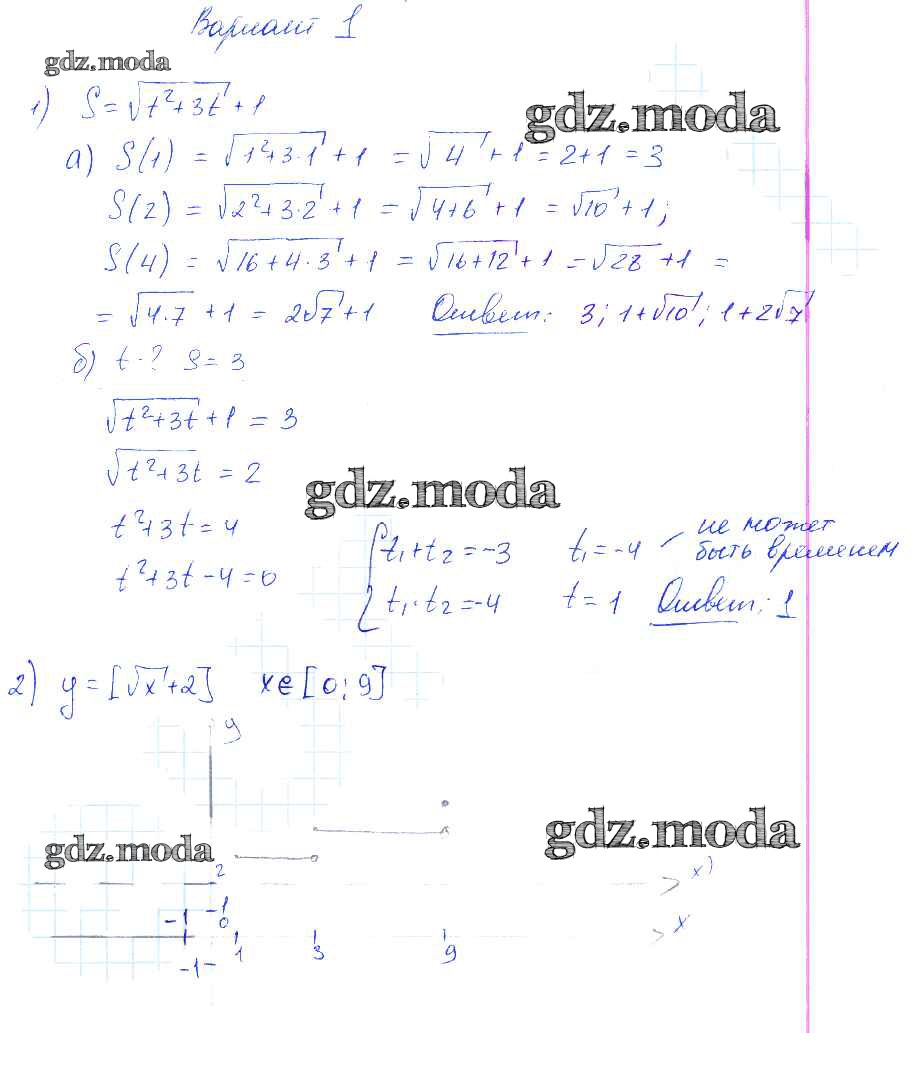 Вариант 1
gdz.moda
1) S = √(t²+3t) + 1
gdz.moda
а) S(1) = √(1²+3·1) + 1 = √4 + 1 = 2+1 = 3
S(2) = √(2²+3·2) + 1 = √(4+6) + 1 = √10 + 1;
S(4) = √(16+4·3) + 1 = √(16+12) + 1 = √28 + 1 =
= √(4·7) + 1 = 2√7 + 1 Ответ: 3; 1+√10; 1+2√7
б) t-? S = 3
√(t²+3t) + 1 = 3
√(t²+3t) = 2
gdz.moda
t²+3t = 4
t²+3t-4=0
{ t₁+t₂ = -3 t₁ = -4 - не может быть временем
t₁·t₂ = -4 t = 1 Ответ: 1
2) y = [√x+2] x∈[0; 9]
y
gdz.moda
gdz.moda
2
x)
-1
-1
0
x
-1
1
3
9